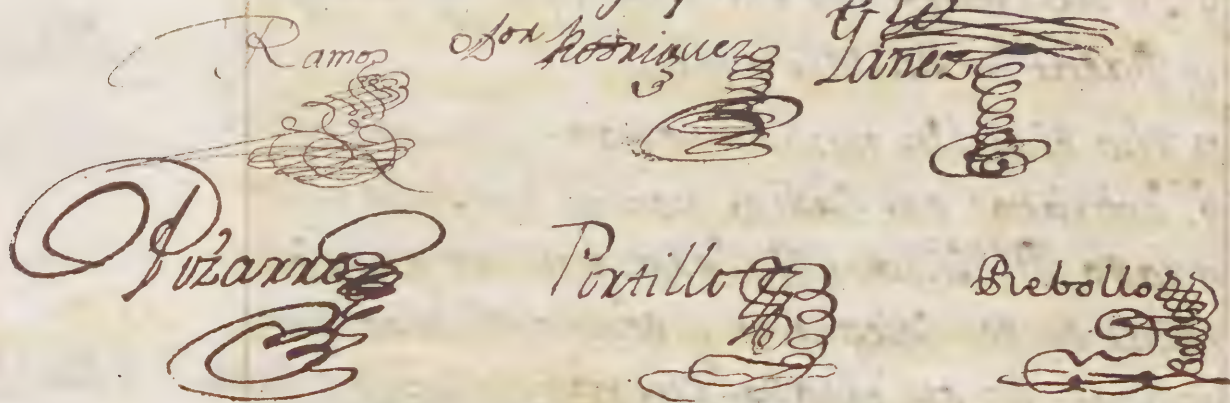 Ramos
Rodriguez
Yañez
Pizarro
Portillo
Rebollo